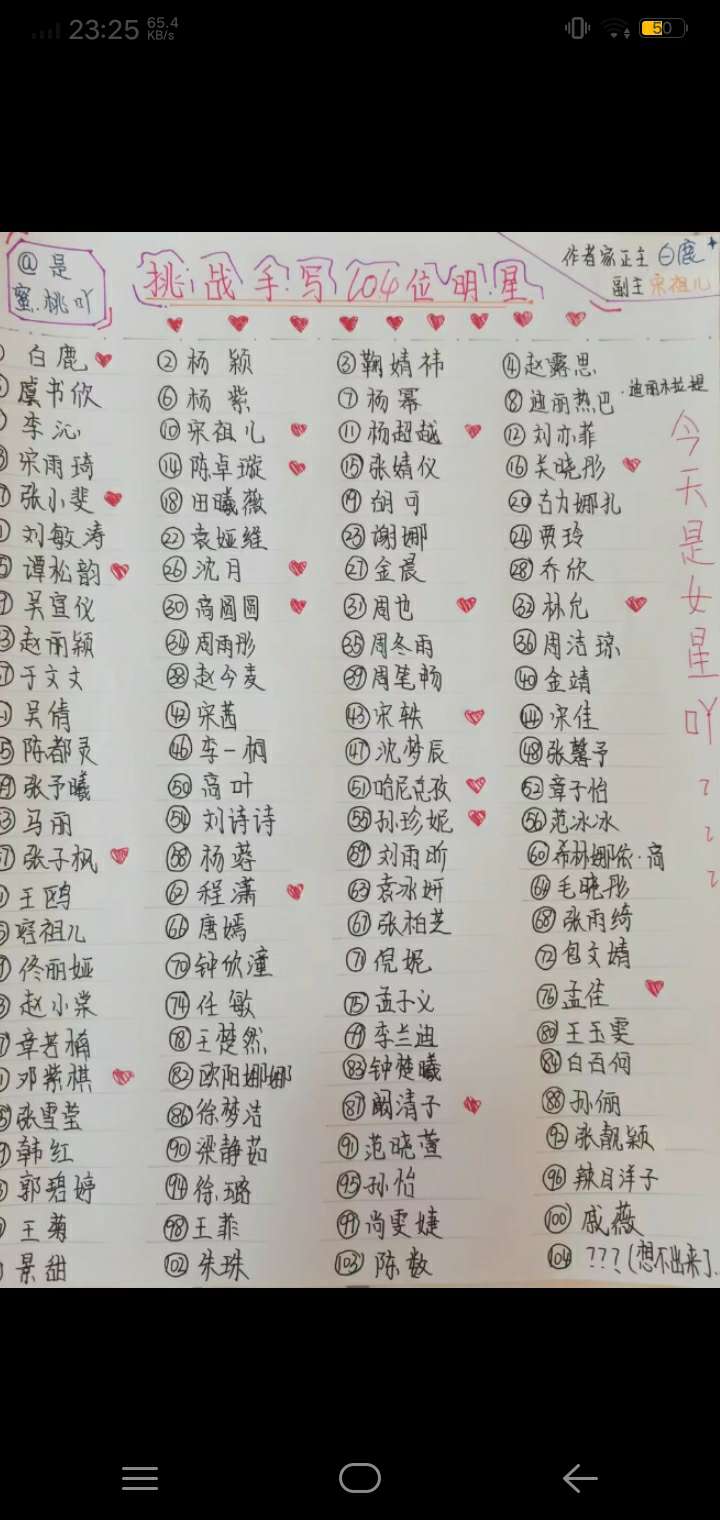 23:25 65.4 KB/s 50
@是蜜.桃吖
挑战手写104位明星
作者家正主 白鹿
副主 宋祖儿
白鹿 ②杨颖 ③鞠婧祎 ④赵露思
虞书欣 ⑥杨紫 ⑦杨幂 ⑧迪丽热巴·迪丽木拉提
李沁 ⑩宋祖儿 ⑪杨超越 ⑫刘亦菲
宋雨琦 ⑭陈卓璇 ⑮张婧仪 ⑯关晓彤
张小斐 ⑱田曦薇 ⑲胡可 ⑳古力娜扎
刘敏涛 ㉒袁娅维 ㉓谢娜 ㉔贾玲
谭松韵 ㉖沈月 ㉗金晨 ㉘乔欣
吴宣仪 ㉚高圆圆 ㉛周也 ㉜林允
赵丽颖 ㉞周雨彤 ㉟周冬雨 ㊱周洁琼
于文文 ㊳赵今麦 ㊴周笔畅 ㊵金靖
吴倩 ㊷宋茜 ㊸宋轶 ㊹宋佳
陈都灵 ㊻李一桐 ㊼沈梦辰 ㊽张馨予
张予曦 ㊿高叶 51哈尼克孜 52章子怡
马丽 54刘诗诗 55孙珍妮 56范冰冰
张子枫 58杨蓉 59刘雨昕 60希林娜依·高
王鸥 62程潇 63袁冰妍 64毛晓彤
容祖儿 66唐嫣 67张柏芝 68张雨绮
佟丽娅 70钟欣潼 71倪妮 72包文婧
赵小棠 74任敏 75孟子义 76孟佳
章若楠 78王楚然 79李兰迪 80王玉雯
邓紫棋 82欧阳娜娜 83钟楚曦 84白百何
张雪莹 86徐梦洁 87阚清子 88孙俪
韩红 90梁静茹 91范晓萱 92张靓颖
郭碧婷 94徐璐 95孙怡 96辣目洋子
王菊 98王菲 99尚雯婕 100戚薇
景甜 102朱珠 103陈数 104???(想不出来了.
今天是女星吖